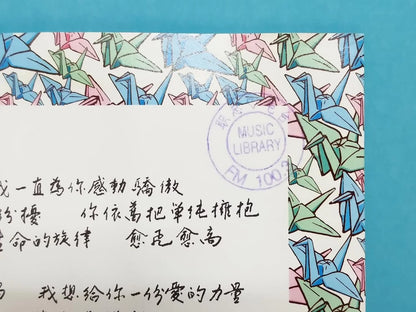 MUSIC
LIBRARY
FM 100.3
我一直為你感動驕傲
紛擾 你依舊把單純擁抱
生命的旋律 愈走愈高
我想給你一份愛的力量